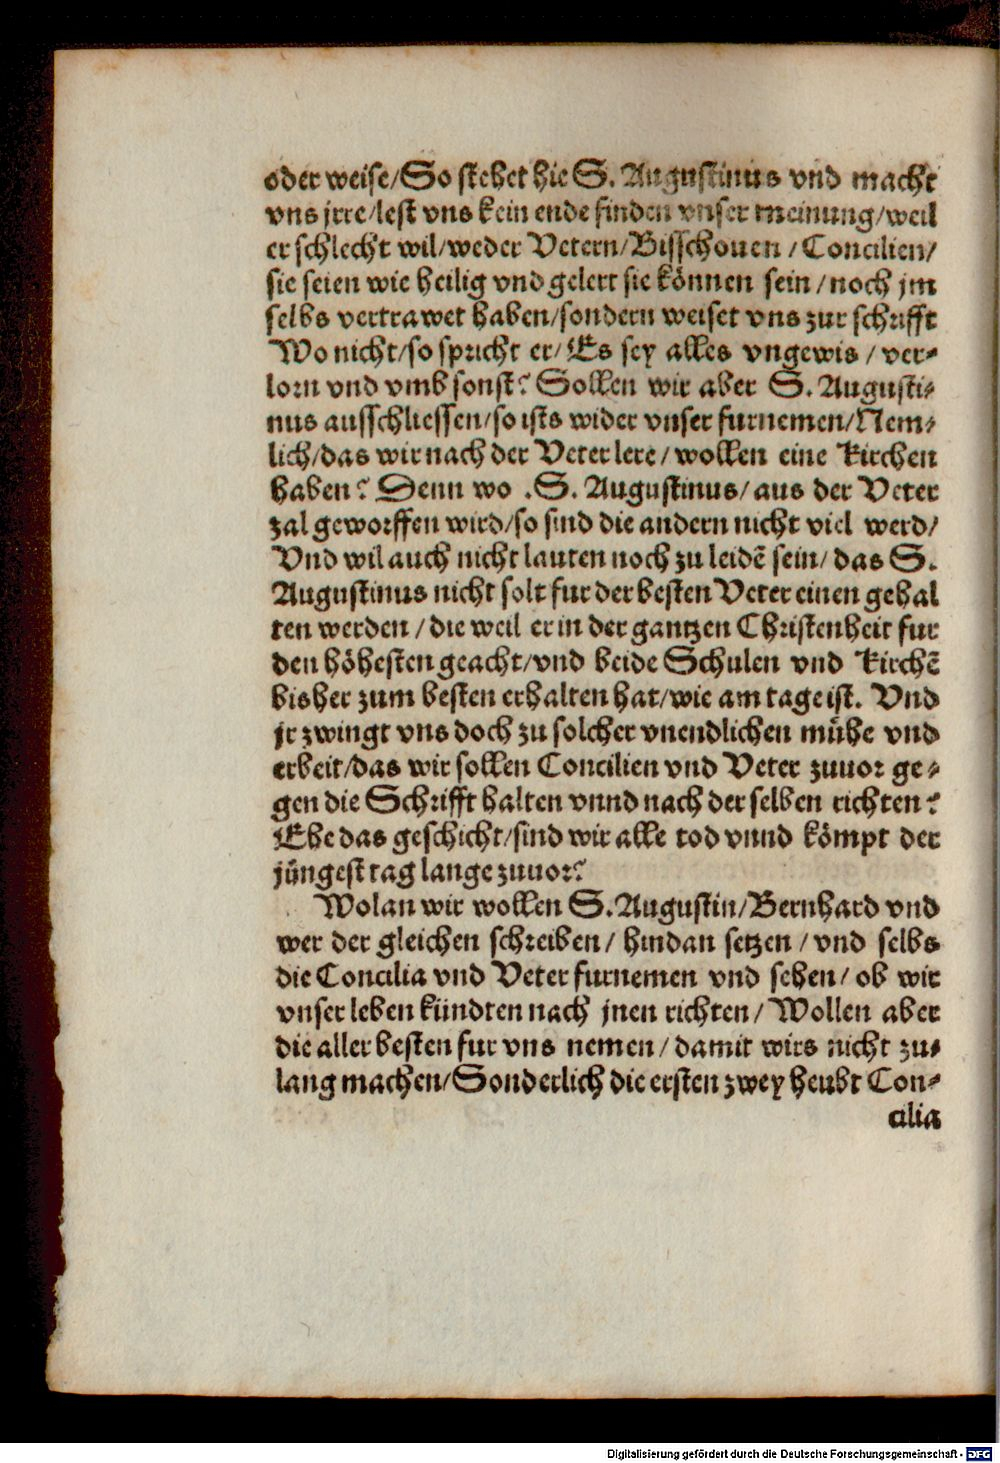 oder weise/So stehet hie S. Augustinus vnd macht
vns jrre/lest vns kein ende finden vnser meinung/weil
er schlecht wil/weder Vetern/Bisschouen/Concilien/
sie seien wie heilig vnd gelert sie können sein/noch jm
selbs vertrawet haben/sondern weiset vns zur schrifft
Wo nicht/so spricht er/Es sey alles vngewis/ver-
lorn vnd vmb sonst? Sollen wir aber S. Augusti-
nus ausschliessen/so ists wider vnser furnemen/Nem-
lich/das wir nach der Veter lere/wollen eine Kirchen
haben? Denn wo .S. Augustinus/aus der Veter
zal geworffen wird/so sind die andern nicht viel werd/
Vnd wil auch nicht lauten noch zu leidē sein/das S.
Augustinus nicht solt fur der besten Veter einen gehal
ten werden/die weil er in der gantzen Christenheit fur
den höhesten geacht/vnd beide Schulen vnd Kirchē
bisher zum besten erhalten hat/wie am tage ist. Vnd
jr zwingt vns doch zu solcher vnendlichen mühe vnd
erbeit/das wir sollen Concilien vnd Veter zuuor ge-
gen die Schrifft halten vnnd nach der selben richten?
Ehe das geschicht/sind wir alle tod vnnd kömpt der
jüngest tag lange zuuor?
Wolan wir wollen S. Augustin/Bernhard vnd
wer der gleichen schreiben/hindan setzen/vnd selbs
die Concilia vnd Veter furnemen vnd sehen/ob wir
vnser leben kündten nach jnen richten/Wollen aber
die aller besten fur vns nemen/damit wirs nicht zu-
lang machen/Sonderlich die ersten zwey heubt Con-
cilia
Digitalisierung gefördert durch die Deutsche Forschungsgemeinschaft - DFG